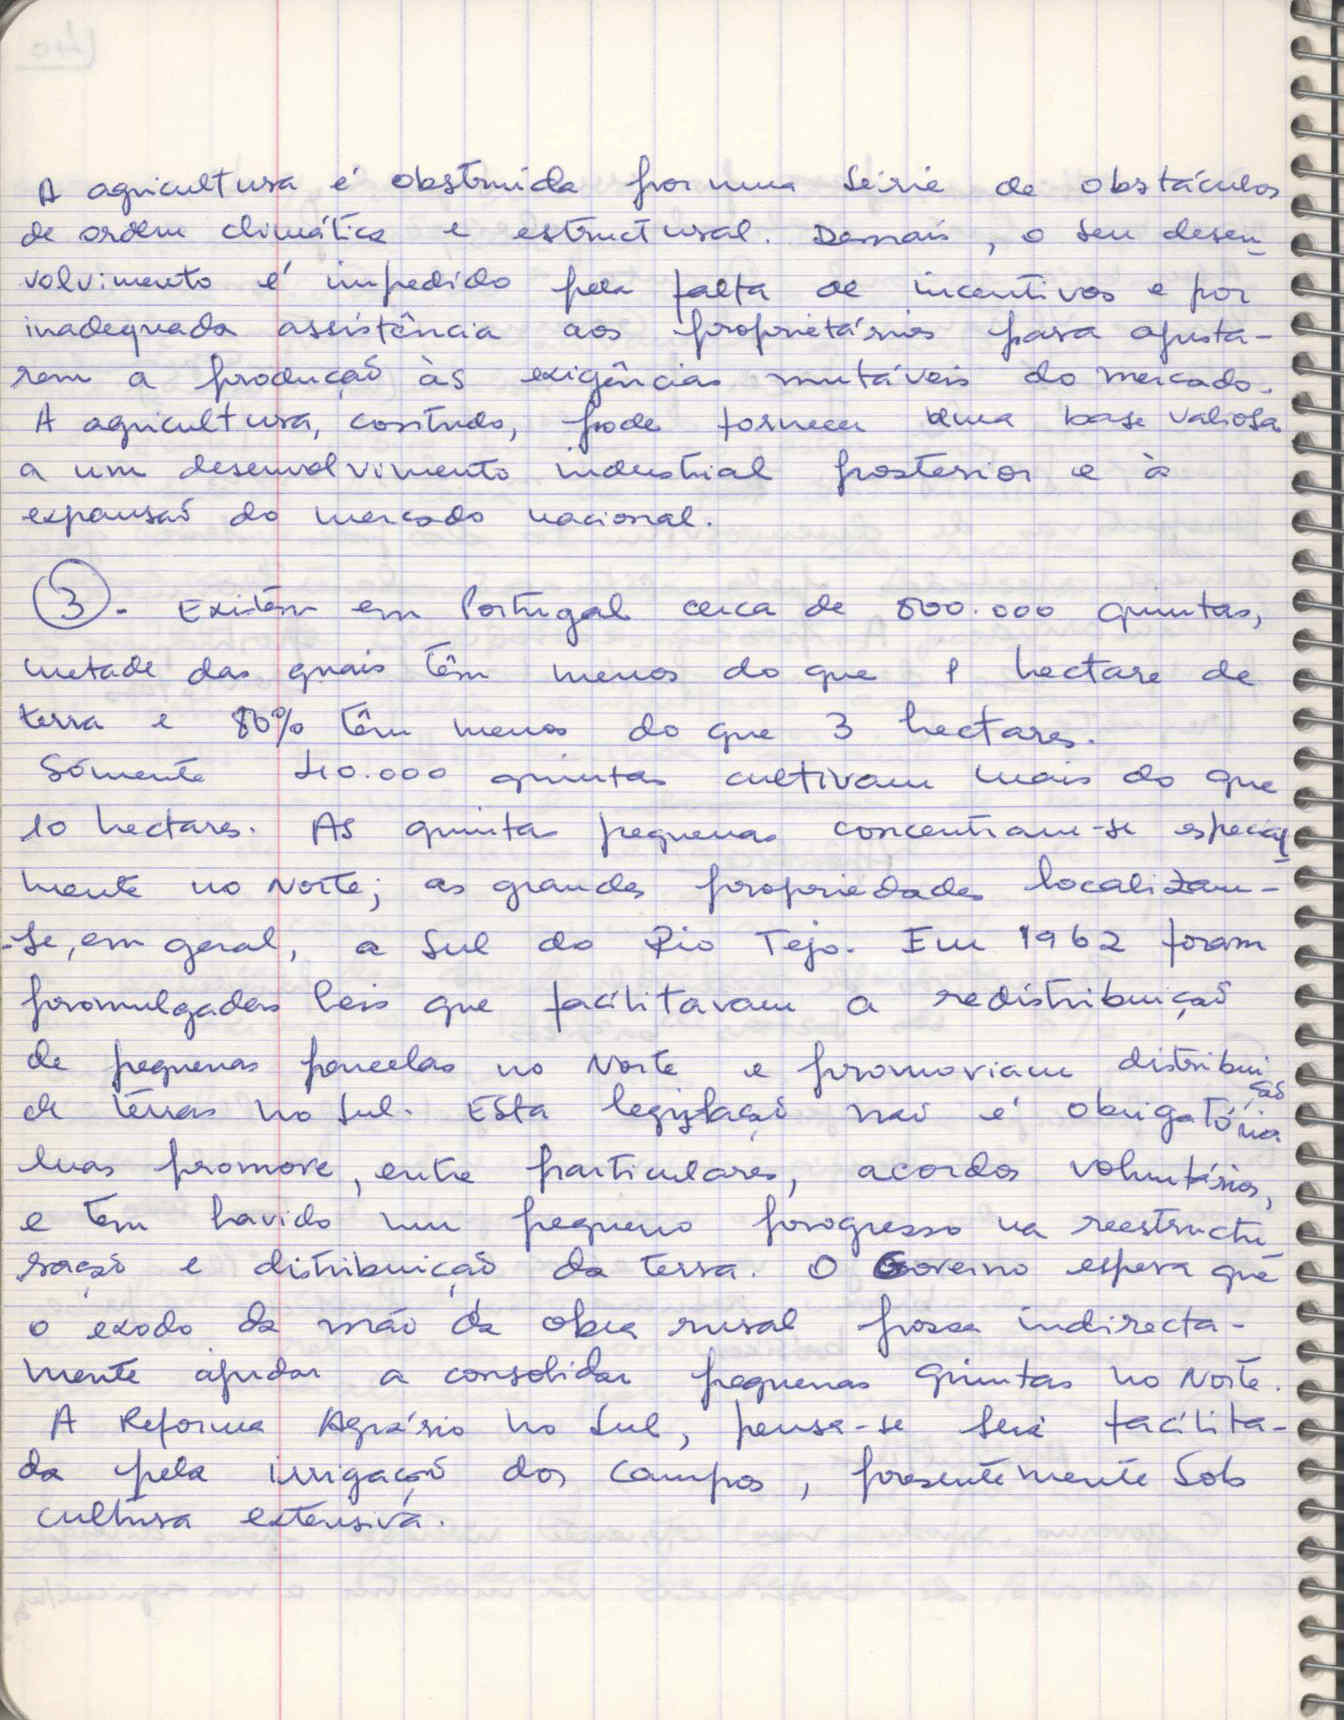 A agricultura é obstruida por uma série de obstáculos
de ordem climática e estructural. Demais, o seu desen-
volvimento é impedido pela falta de incentivos e por
inadequada assistência aos proprietários para ajusta-
rem a produção às exigências mutáveis do mercado.
A agricultura, contudo, pode fornecer uma base valiosa
a um desenvolvimento industrial posterior e à
expansão do mercado nacional.
3. Existem em Portugal cerca de 800.000 quintas,
metade das quais têm menos do que 1 hectare de
terra e 80% têm menos do que 3 hectares.
Sómente 40.000 quintas cultivam mais do que
10 hectares. As quintas pequenas concentram-se especial-
mente no Norte; as grandes propriedades localizam-
-se, em geral, a Sul do Rio Tejo. Em 1962 foram
promulgadas leis que facilitavam a redistribuição
de pequenas parcelas no Norte e promoviam distribuição
de terras no Sul. Esta legislação não é obrigatória
mas promove, entre particulares, acordos voluntários,
e tem havido um pequeno progresso na reestructu-
ração e distribuição da terra. O Governo espera que
o exodo da mão da obra rural possa indirecta-
mente ajudar a consolidar pequenas quintas no Norte.
A Reforma Agrária no Sul, pensa-se será facilita-
da pela irrigação dos campos, presentemente sob
cultura extensiva.